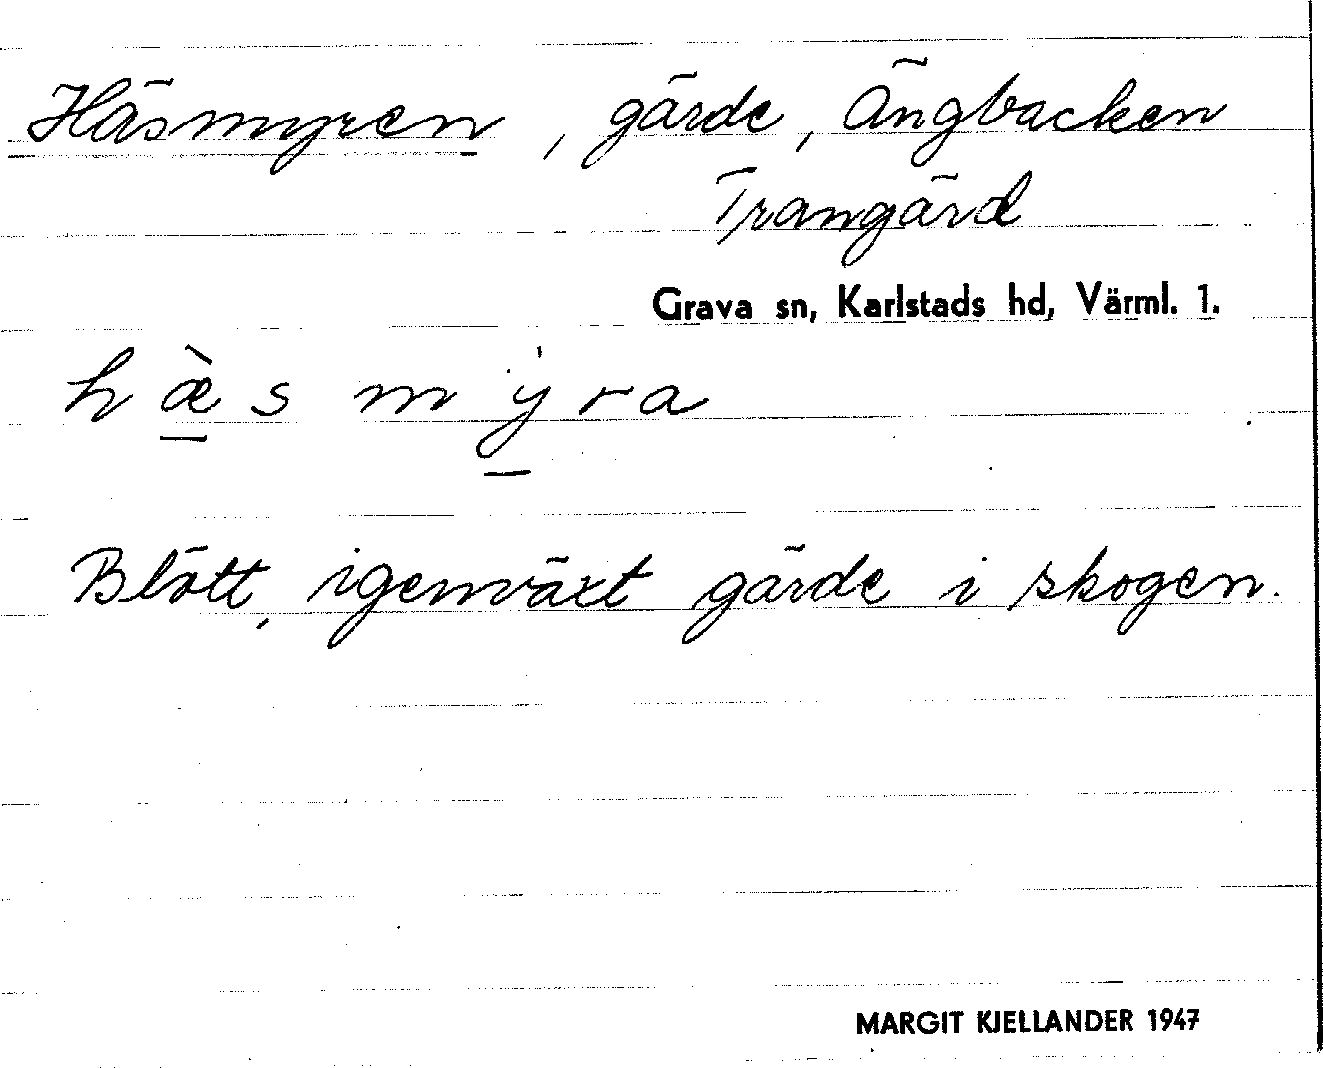 Häsmyren, gärde, Ängbacken
Trangärd
Grava sn, Karlstads hd, Värml. 1.
hæ̀s mýra
Blött, igenväxt gärde i skogen.
MARGIT KJELLANDER 1947